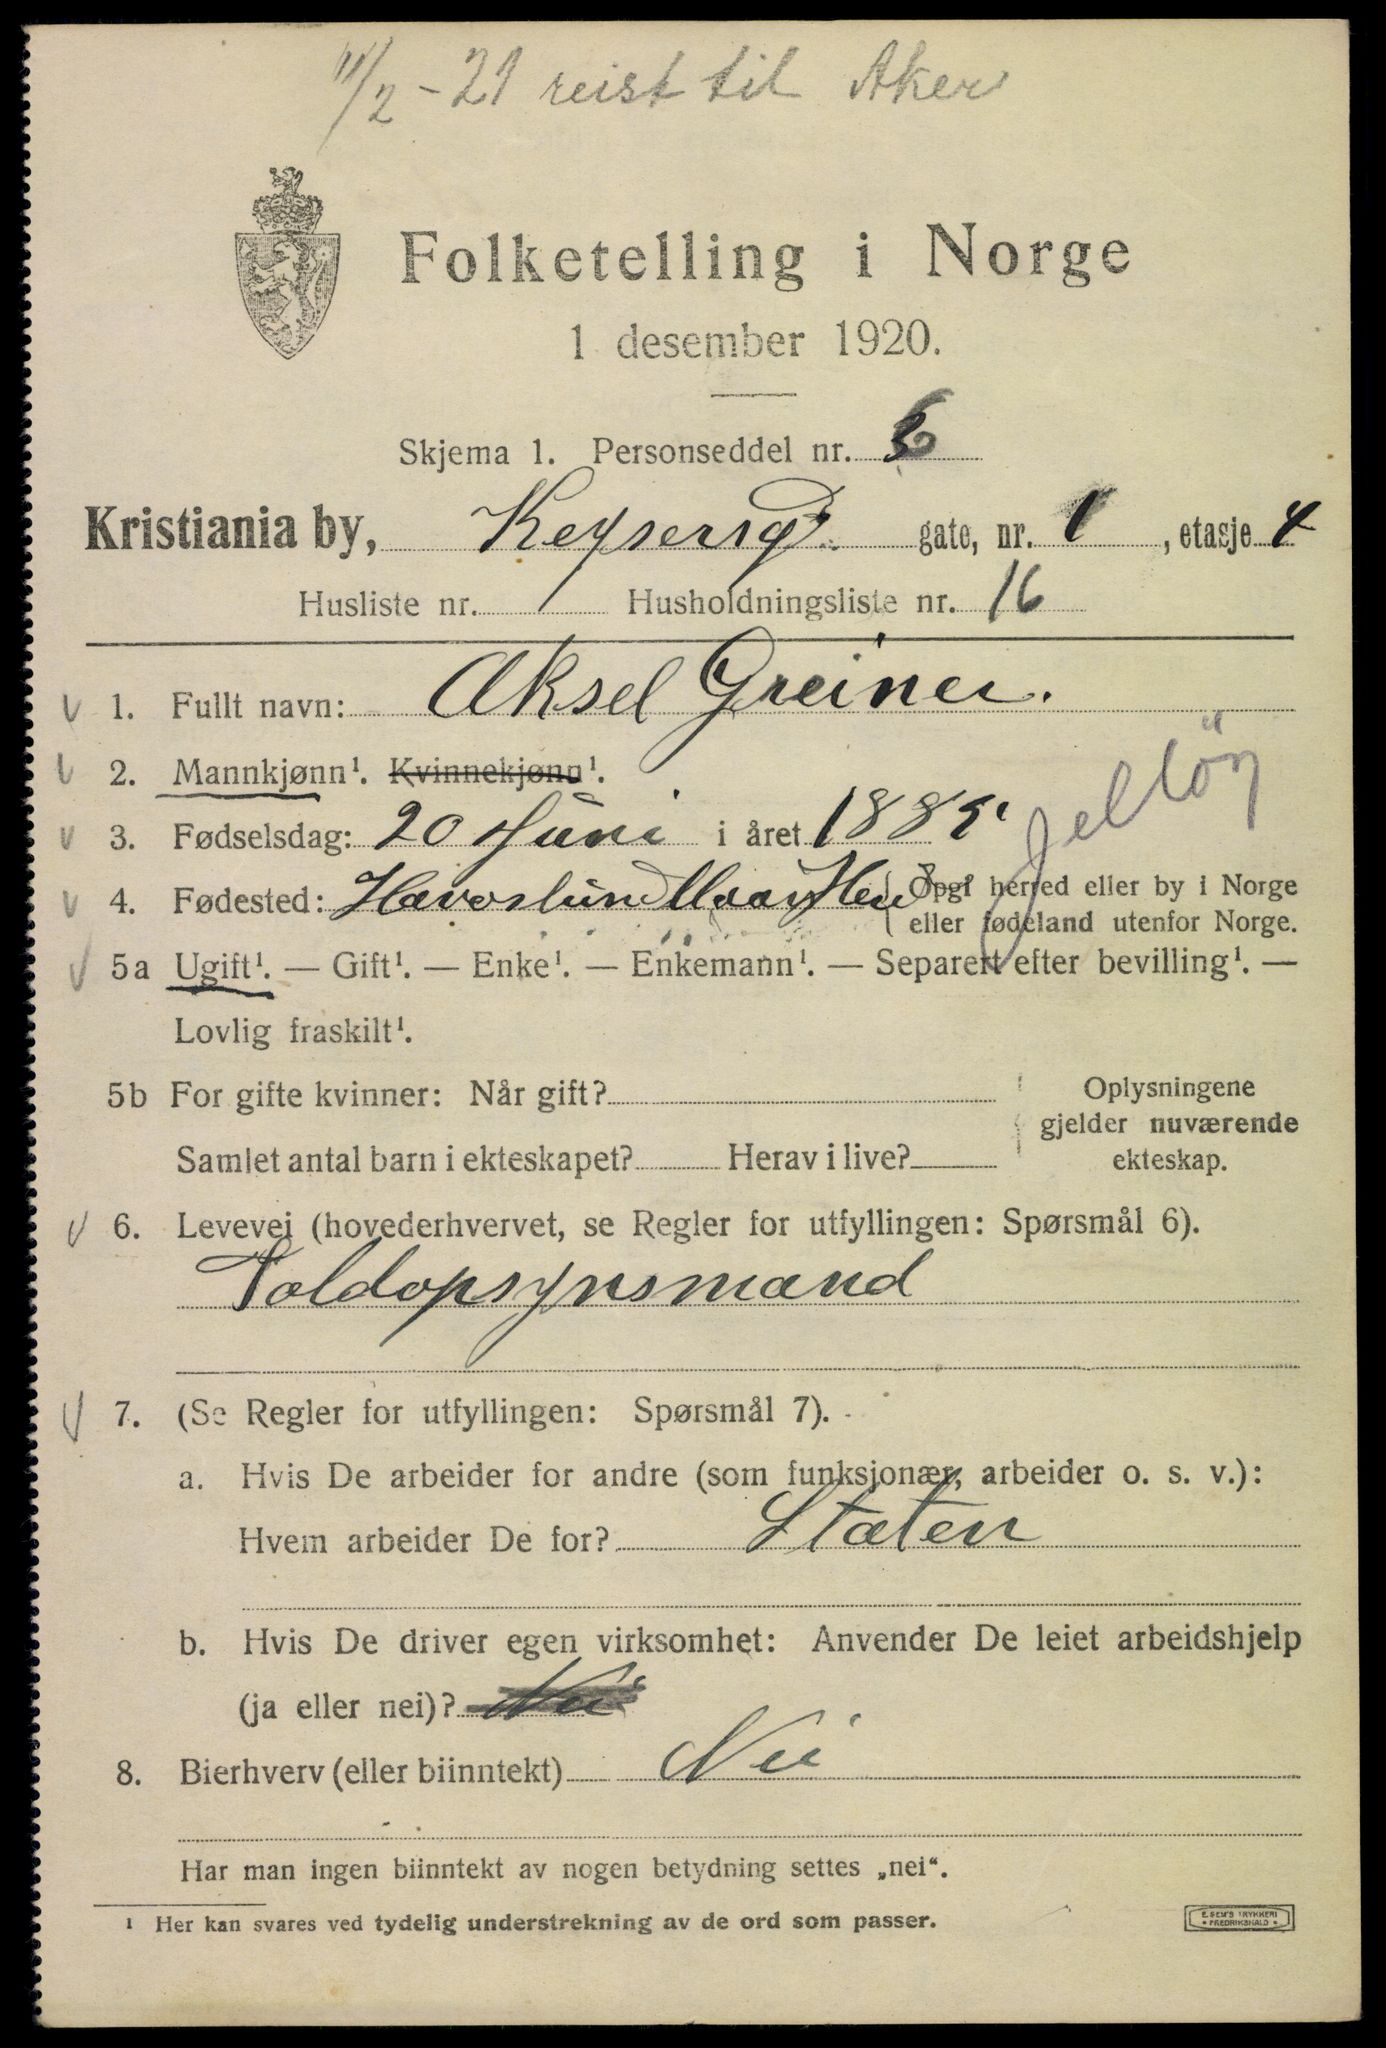 11/2 - 21 reist til Aker
Folketelling i Norge
1 desember 1920.
Skjema 1. Personseddel nr.
Kristiania by, Keysersg. gate, nr. 1, etasje 4
Husliste nr. Husholdningsliste nr. 16
1. Fullt navn: Aksel Greiner.
2. Mannkjønn¹. Kvinnekjønn¹.
Jellöy
3. Fødselsdag: 20 Juni i året 188
4. Fødested: { Opgi herred eller by i Norge
eller fødeland utenfor Norge.
5a Ugift¹. — Gift¹. — Enke¹. — Enkemann¹. — Separert efter bevilling¹. —
Lovlig fraskilt¹.
5b For gifte kvinner: Når gift? Oplysningene
gjelder nuværende
Samlet antal barn i ekteskapet? Herav i live? ekteskap.
6. Levevei (hovederhvervet, se Regler for utfyllingen: Spørsmål 6).
Toldopsynsmand
7. (Se Regler for utfyllingen: Spørsmål 7).
a. Hvis De arbeider for andre (som funksjonær, arbeider o. s. v.):
Hvem arbeider De for? Staten
b. Hvis De driver egen virksomhet: Anvender De leiet arbeidshjelp
(ja eller nei)? Nei
8. Bierhverv (eller biinntekt) Nei
Har man ingen biinntekt av nogen betydning settes „nei“.
¹ Her kan svares ved tydelig understrekning av de ord som passer.
E. SEM'S TRYKKERI
• FREDRIKSHALD •